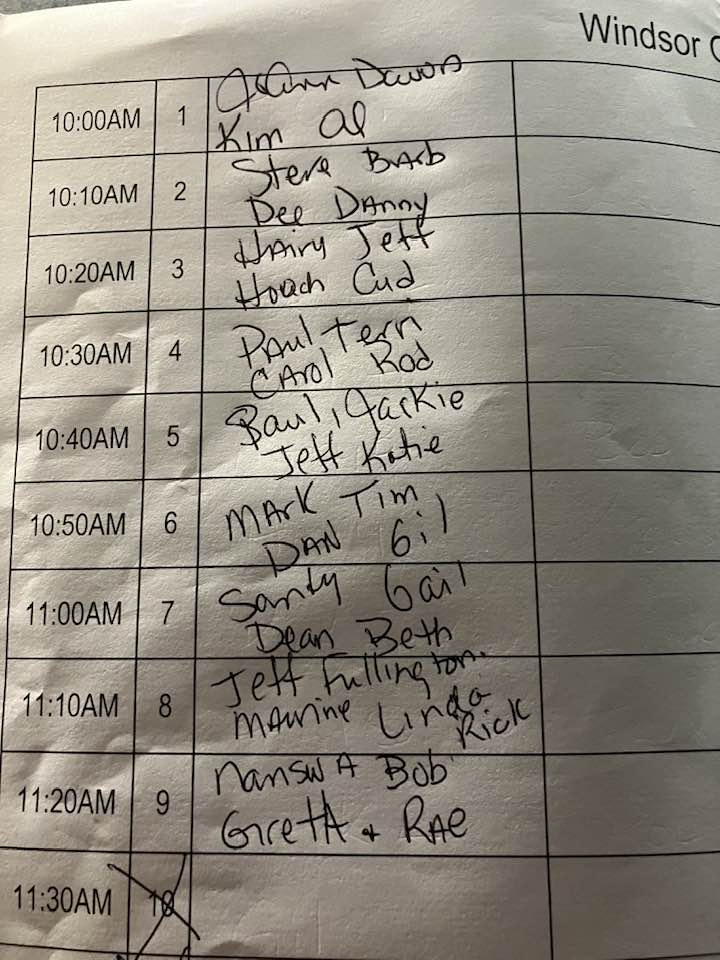 Windsor
10:00AM 1 JoAnn Dawn
Kim Al
10:10AM 2 Steve Barb
Dee Danny
10:20AM 3 Hairy Jeff
Hoach Cud
10:30AM 4 Paul Terri
Carol Rod
10:40AM 5 Paul, Jackie
Jeff Katie
10:50AM 6 Mark Tim
Dan Gil
11:00AM 7 Sandy Gail
Dean Beth
11:10AM 8 Jeff Fullington.
Maurine Linda
Rick
11:20AM 9 Bob
Gretta + Rae
11:30AM 10